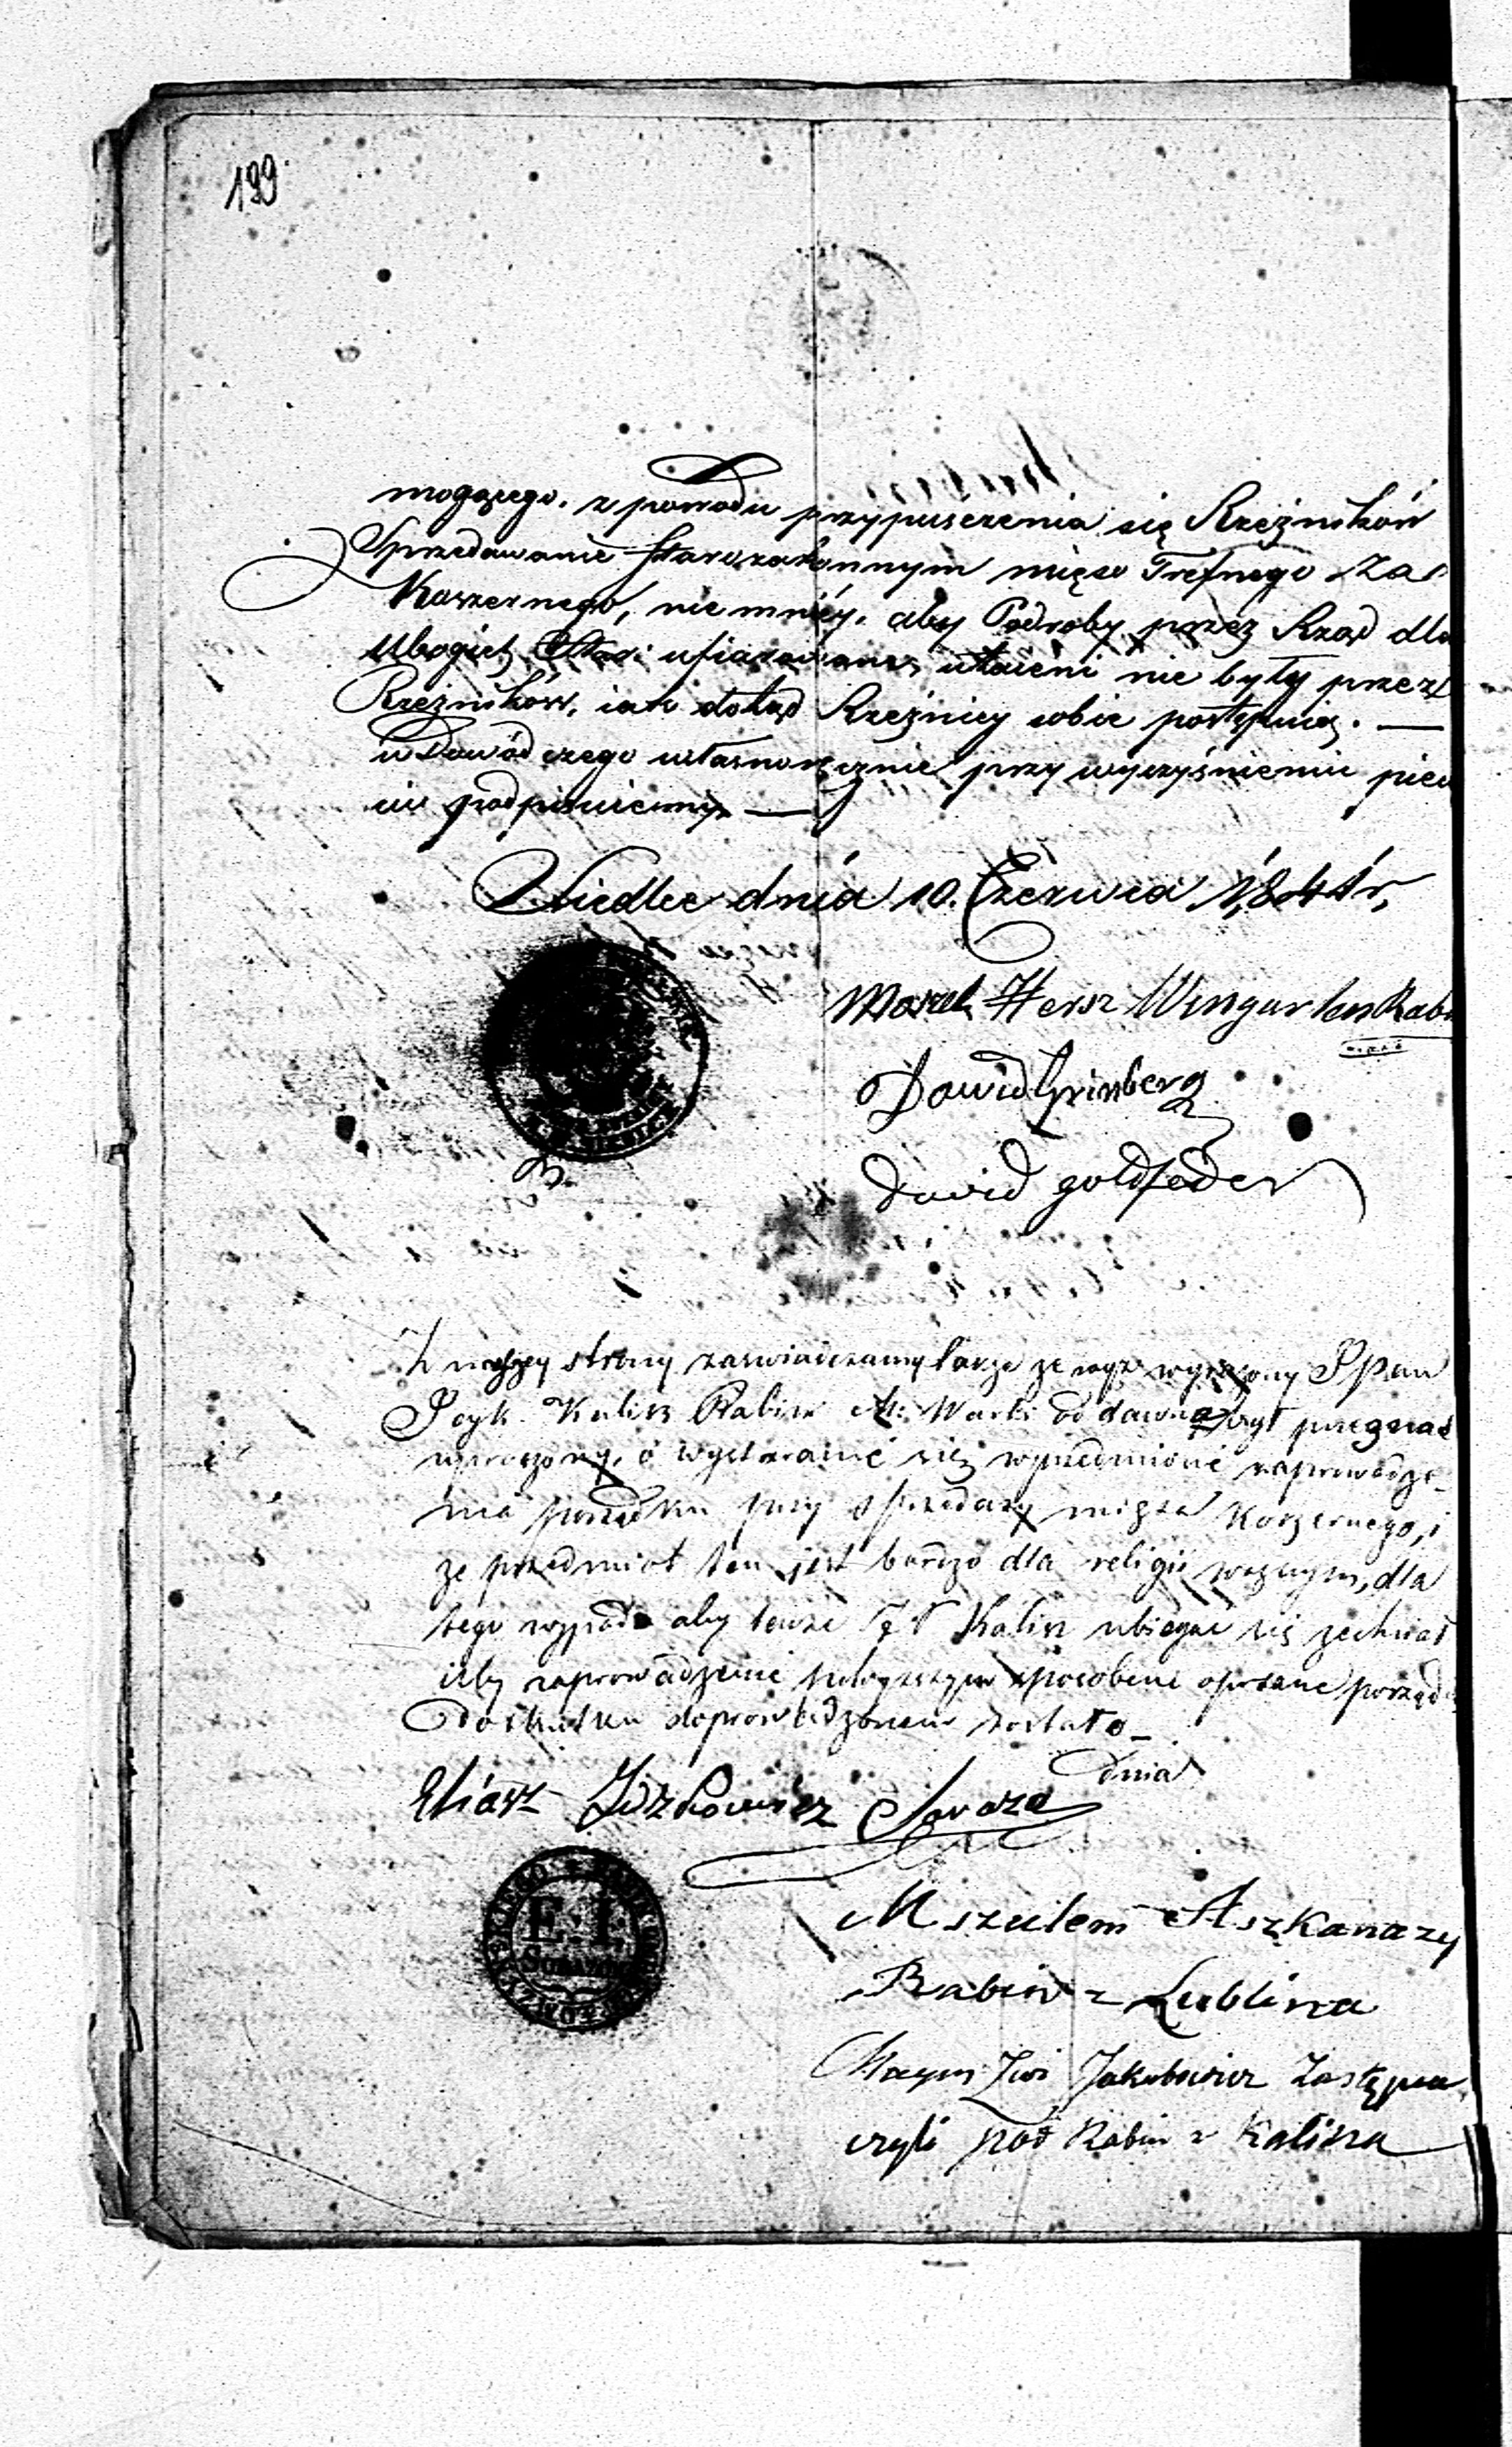 199
mogącego. z powodu przypuszczenia się Rzeźników
Sprzedawanie Starozakonnym mięso Trefnego za
Koszernego, niemniéy, aby Podroby przez Rząd dla
Ubogich Star: ufiarowane, utaieni nie były przez
Rzeźników, iak dotąd Rzeźnicy sobie postępuią. —
w Dowód czego własnoręcznie przy wyczyśnieniu piec
ci podpisuiemy —
Siedlce dnia 10. Czerwca 1,841 r,
Moszek Hersz Wingarten Rabi
Dawid Grinberg
David goldfeder
Z naszey strony zaswiadczamy także ze wyż wyrażony JPan
Icyk Kalisz Rabin M: Warki od dawna był przez nas
uproszony, o wystaranie się wprzedmiocie zaprowadze-
nia porządku przy sprzedaży mięsa Koszernego, i
ze przedmiot ten jest bardzo dla religii ważnym, dla
tego wypada aby tenże Kalisz ubiegac się zechciał
iżby zaprowadzenie powyższym sposobem opisane porząd
do skutku doprowadzonem zostało —
dnia
Eliasz Idzkowicz Soraza
E. I.
Mszulem Aszkanazy
Rabin z Lublina
Chaym Zwi Jakubowicz Zastępca
czyli pod Rabin z Kalisza